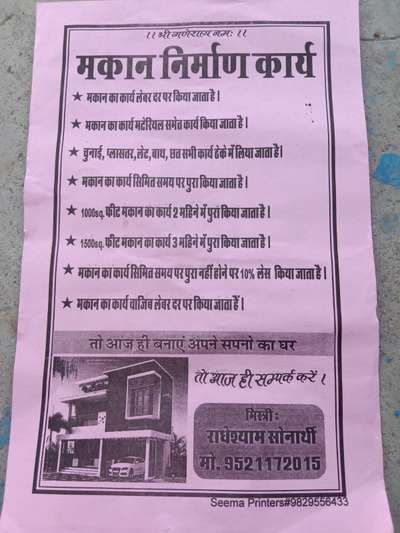 ।। श्री गणेशाय नमः ।।
मकान निर्माण कार्य
★ मकान का कार्य लेबर दर पर किया जाता है।
★ मकान का कार्य मटेरियल समेत कार्य किया जाता है।
★ चुनाई, प्लासतर, लेट, बाथ, छत सभी कार्य ठेके में लिया जाता है।
★ मकान का कार्य सिमित समय पर पुरा किया जाता है।
★ 1000sq. फीट मकान का कार्य 2 महिने में पुरा किया जाता है।
★ 1500sq. फीट मकान का कार्य 3 महिने में पुरा किया जाता है।
★ मकान का कार्य सिमित समय पर पुरा नहीं होने पर 10% लेस किया जाता है।
★ मकान का कार्य वाजिब लेबर दर पर किया जाता हैं।
तो आज ही बनाएं अपने सपनो का घर
तो आज ही सम्पर्क करें।
मिस्त्री:
राधेश्याम सोनार्थी
मो. 9521172015
Seema Printers#9829556433